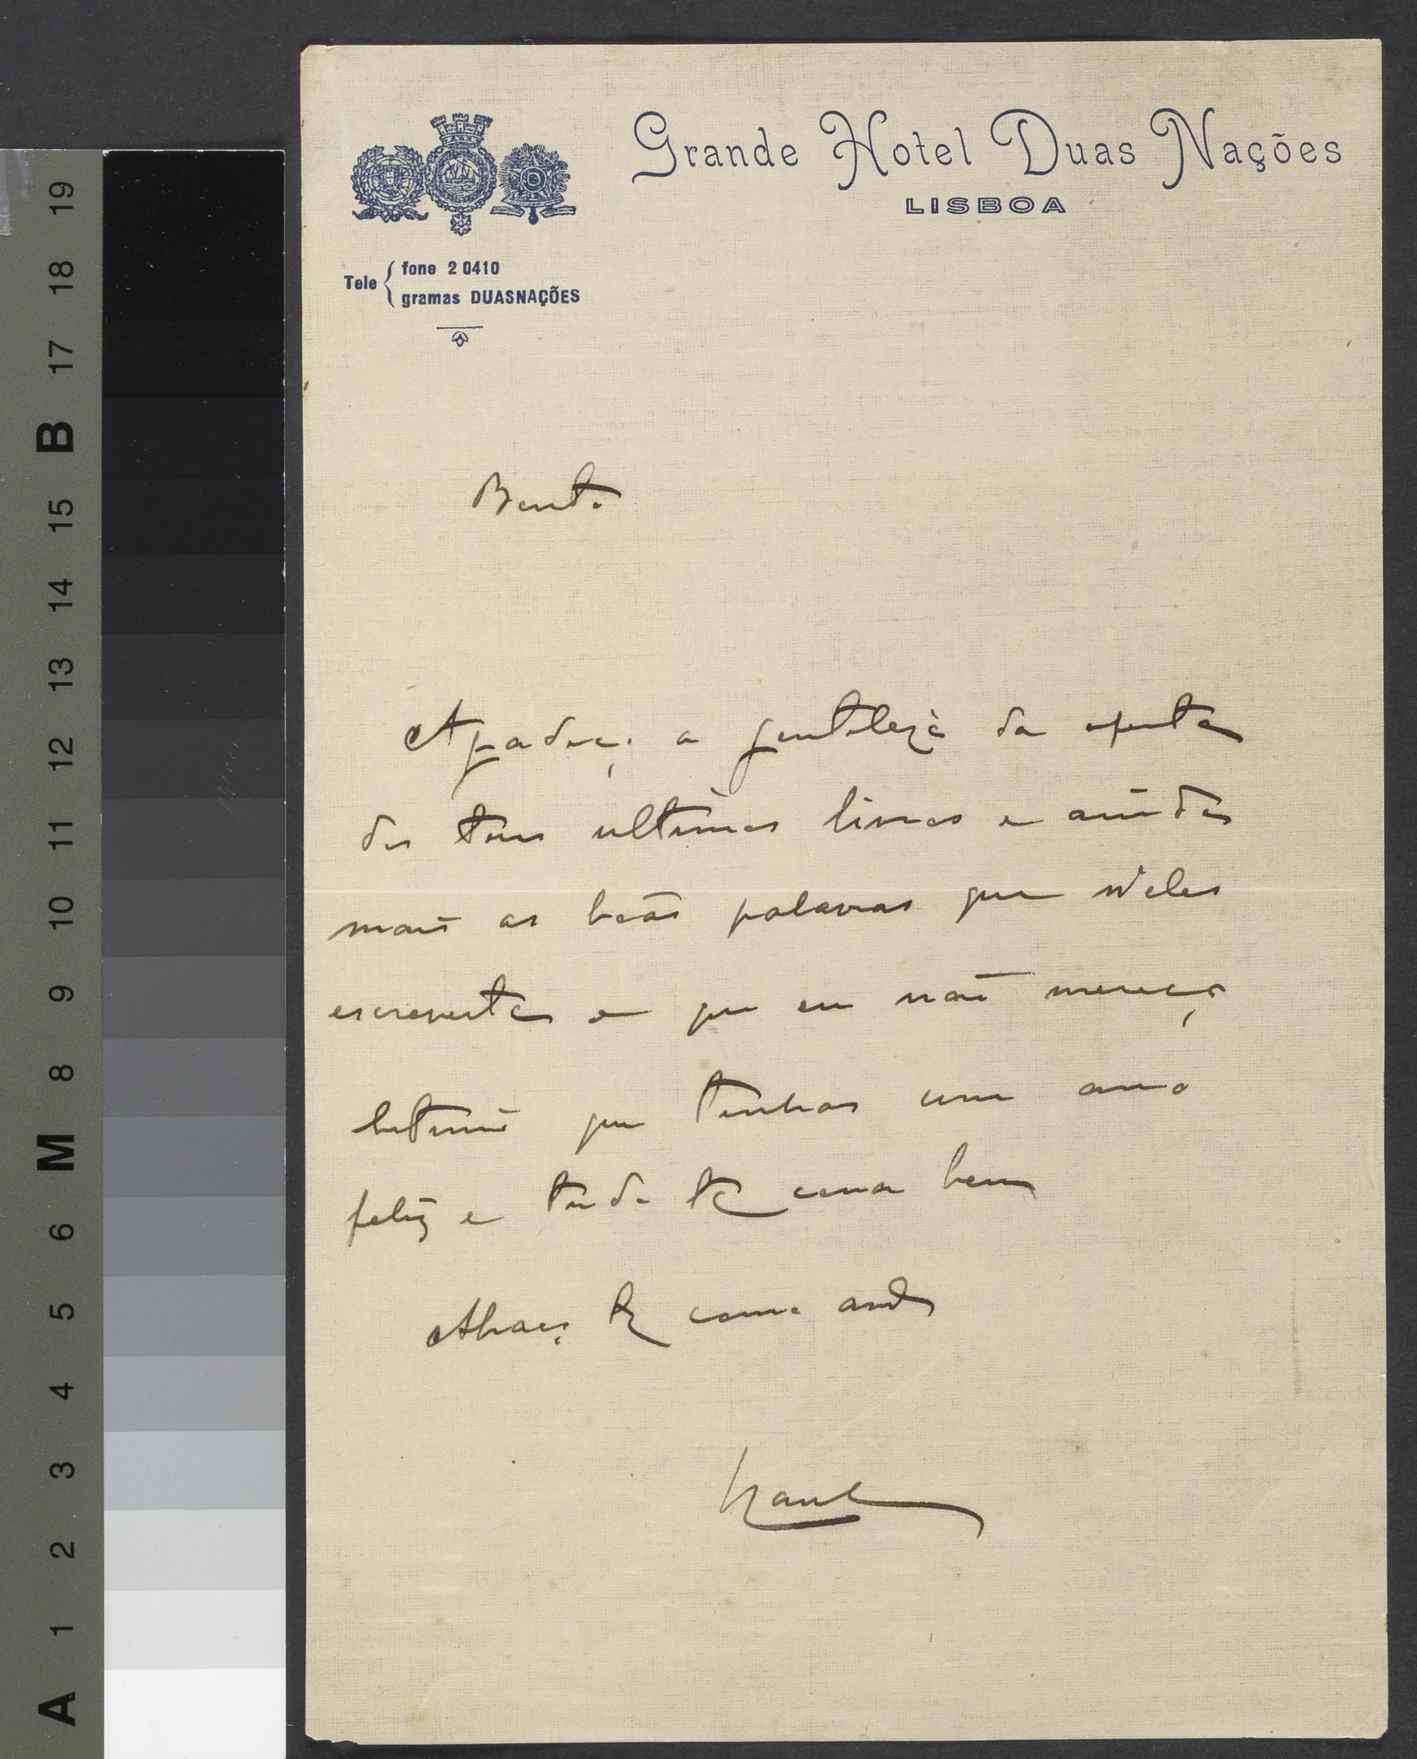 Grande Hotel Duas Nações
LISBOA
Tele { fone 2 0410
gramas DUASNAÇÕES
Bento
Agradeço a gentileza da oferta
dos teus ultimos livros e ainda
mais as boas palavras que n'eles
escreveste e que eu não mereço
que tenhas um ano
feliz e tudo te corra bem
Abraça te como
19
18
17
B
15
14
13
12
11
10
9
8
M
6
5
4
3
2
1
A